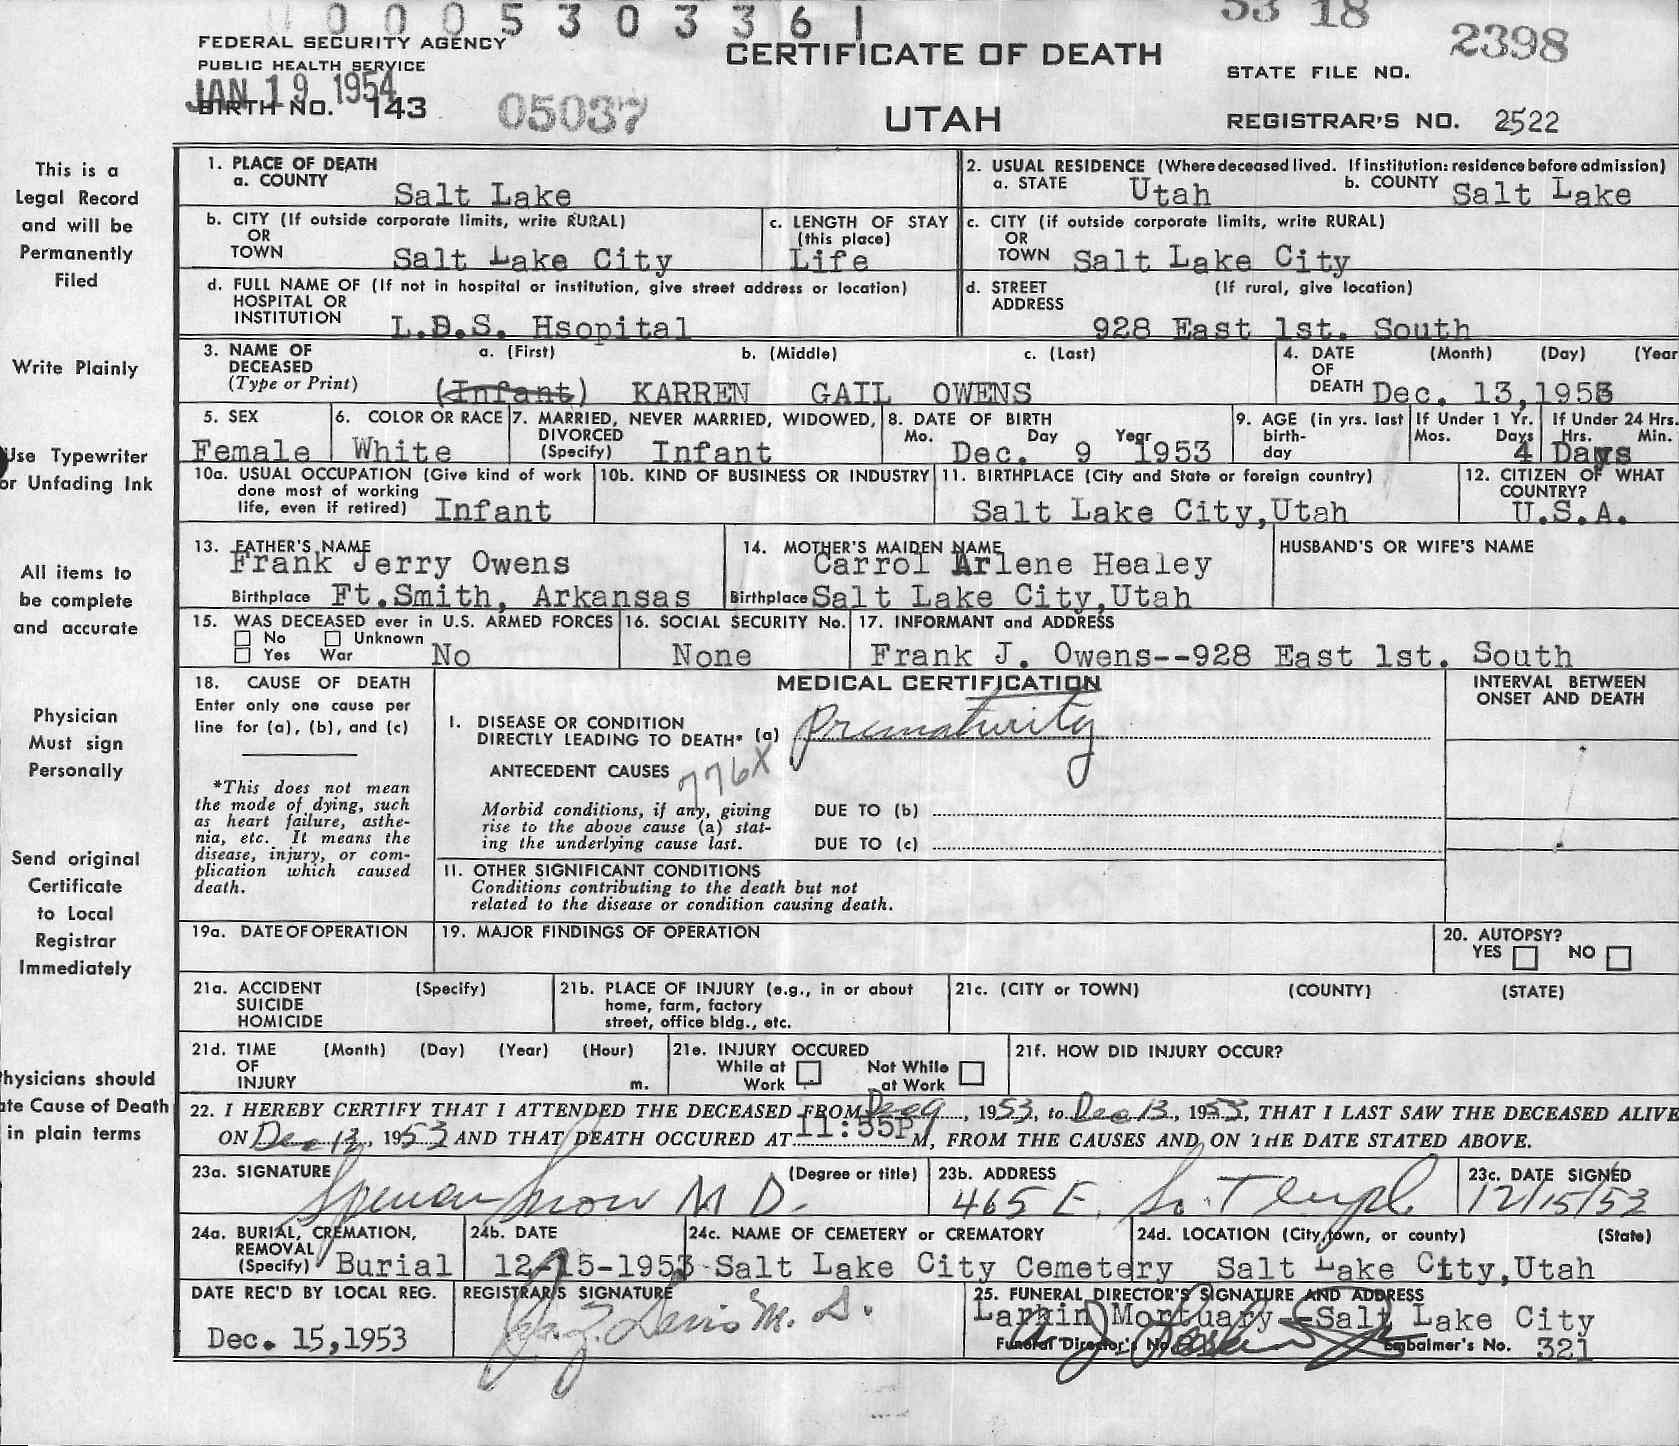 0005303361
53 18
2398
FEDERAL SECURITY AGENCY
PUBLIC HEALTH SERVICE
CERTIFICATE OF DEATH
STATE FILE NO.
JAN 19 1954
BIRTH NO. 143
05037
UTAH
REGISTRAR'S NO. 2522
This is a
Legal Record
and will be
Permanently
Filed
Write Plainly
Use Typewriter
or Unfading Ink
All items to
be complete
and accurate
Physician
Must sign
Personally
Send original
Certificate
to Local
Registrar
Immediately
hysicians should
ate Cause of Death
in plain terms
1. PLACE OF DEATH
a. COUNTY Salt Lake
2. USUAL RESIDENCE (Where deceased lived. If institution: residence before admission)
a. STATE Utah b. COUNTY Salt Lake
b. CITY (If outside corporate limits, write RURAL)
OR
TOWN Salt Lake City
c. LENGTH OF STAY
(this place)
Life
c. CITY (if outside corporate limits, write RURAL)
OR
TOWN Salt Lake City
d. FULL NAME OF (If not in hospital or institution, give street address or location)
HOSPITAL OR
INSTITUTION L.D.S. Hsopital
d. STREET (If rural, give location)
ADDRESS
928 East 1st. South
3. NAME OF a. (First) b. (Middle) c. (Last)
DECEASED
(Type or Print) (Infant) KARREN GAIL OWENS
4. DATE (Month) (Day) (Year
OF
DEATH Dec. 13,1953
5. SEX
Female
6. COLOR OR RACE
White
7. MARRIED, NEVER MARRIED, WIDOWED,
DIVORCED
(Specify) Infant
8. DATE OF BIRTH
Mo. Day Year
Dec. 9 1953
9. AGE (in yrs. last
birth-
day
If Under 1 Yr.
Mos. Days
If Under 24 Hrs.
Hrs. Min.
4 Days
10a. USUAL OCCUPATION (Give kind of work
done most of working
life, even if retired) Infant
10b. KIND OF BUSINESS OR INDUSTRY
11. BIRTHPLACE (City and State or foreign country)
Salt Lake City,Utah
12. CITIZEN OF WHAT
COUNTRY?
U.S.A.
13. FATHER'S NAME
Frank Jerry Owens
Birthplace Ft.Smith, Arkansas
14. MOTHER'S MAIDEN NAME
Carrol Arlene Healey
Birthplace Salt Lake City,Utah
HUSBAND'S OR WIFE'S NAME
15. WAS DECEASED ever in U.S. ARMED FORCES
No Unknown
Yes War No
16. SOCIAL SECURITY No.
None
17. INFORMANT and ADDRESS
Frank J. Owens--928 East 1st. South
18. CAUSE OF DEATH
Enter only one cause per
line for (a), (b), and (c)
*This does not mean
the mode of dying, such
as heart failure, asthe-
nia, etc. It means the
disease, injury, or com-
plication which caused
death.
MEDICAL CERTIFICATION
INTERVAL BETWEEN
ONSET AND DEATH
I. DISEASE OR CONDITION
DIRECTLY LEADING TO DEATH* (a) Prematurity
ANTECEDENT CAUSES 776X
Morbid conditions, if any, giving
rise to the above cause (a) stat-
ing the underlying cause last.
DUE TO (b)
DUE TO (c)
II. OTHER SIGNIFICANT CONDITIONS
Conditions contributing to the death but not
related to the disease or condition causing death.
19a. DATE OF OPERATION
19. MAJOR FINDINGS OF OPERATION
20. AUTOPSY?
YES NO
21a. ACCIDENT (Specify)
SUICIDE
HOMICIDE
21b. PLACE OF INJURY (e.g., in or about
home, farm, factory
street, office bldg., etc.
21c. (CITY or TOWN) (COUNTY) (STATE)
21d. TIME (Month) (Day) (Year) (Hour)
OF
INJURY m.
21e. INJURY OCCURED
While at Work Not While at Work
21f. HOW DID INJURY OCCUR?
22. I HEREBY CERTIFY THAT I ATTENDED THE DECEASED FROM Dec 9, 1953, to Dec 13, 1953, THAT I LAST SAW THE DECEASED ALIVE
ON Dec 13, 1953 AND THAT DEATH OCCURED AT 11:55P M, FROM THE CAUSES AND ON THE DATE STATED ABOVE.
23a. SIGNATURE (Degree or title)
Spencer Snow M D.
23b. ADDRESS
465 E. So. Temple
23c. DATE SIGNED
12/15/53
24a. BURIAL, CREMATION,
REMOVAL
(Specify) Burial
24b. DATE
12-15-1953
24c. NAME OF CEMETERY or CREMATORY
Salt Lake City Cemetery
24d. LOCATION (City, town, or county) (State)
Salt Lake City,Utah
DATE REC'D BY LOCAL REG.
Dec. 15,1953
REGISTRAR'S SIGNATURE
M. D.
25. FUNERAL DIRECTOR'S SIGNATURE AND ADDRESS
Larkin Mortuary -Salt Lake City
Funeral Director's No. Embalmer's No. 321